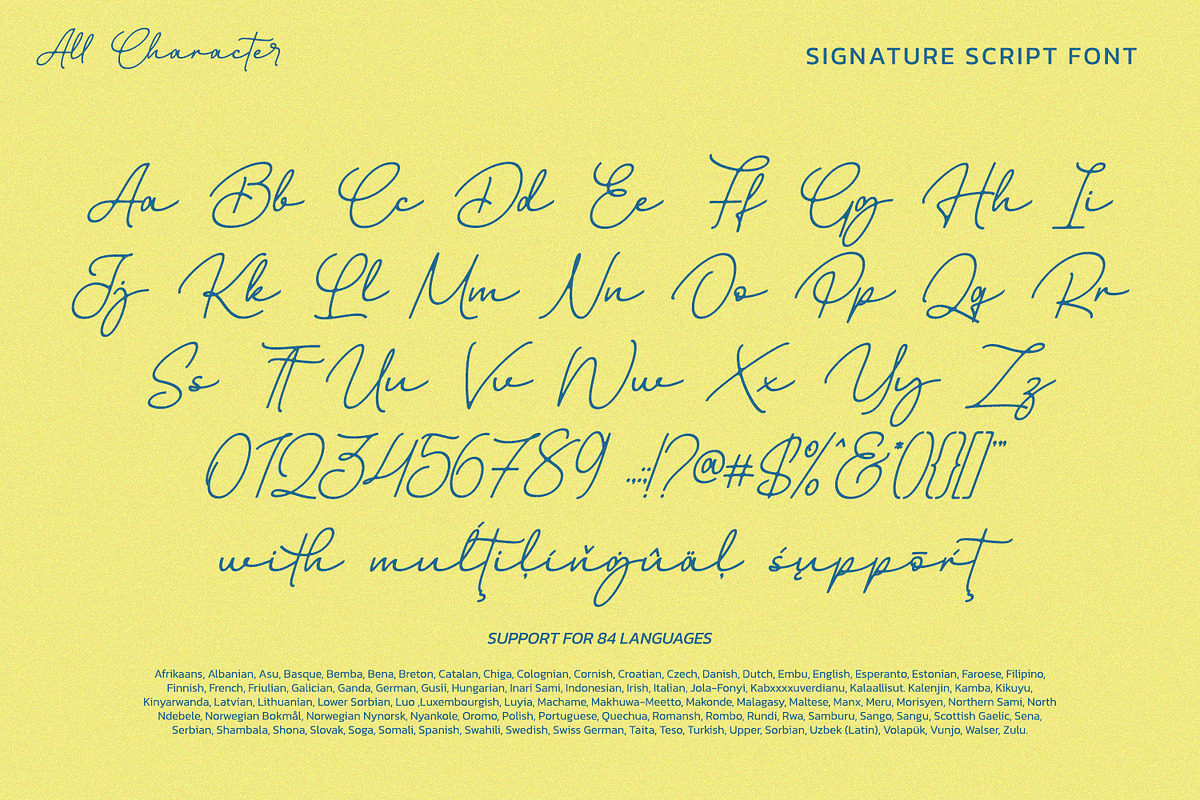 All Character
SIGNATURE SCRIPT FONT
Aa Bb Cc Dd Ee Ff Gg Hh Ii
Jj Kk Ll Mm Nn Oo Pp Qq Rr
Ss Tt Uu Vv Ww Xx Yy Zz
0123456789 .,:;!?@#$%^&*(){}[]"'
with mulţíļíňġûäļ śųppōŕţ
SUPPORT FOR 84 LANGUAGES
Afrikaans, Albanian, Asu, Basque, Bemba, Bena, Breton, Catalan, Chiga, Colognian, Cornish, Croatian, Czech, Danish, Dutch, Embu, English, Esperanto, Estonian, Faroese, Filipino,
Finnish, French, Friulian, Galician, Ganda, German, Gusii, Hungarian, Inari Sami, Indonesian, Irish, Italian, Jola-Fonyi, Kabxxxxuverdianu, Kalaallisut. Kalenjin, Kamba, Kikuyu,
Kinyarwanda, Latvian, Lithuanian, Lower Sorbian, Luo ,Luxembourgish, Luyia, Machame, Makhuwa-Meetto, Makonde, Malagasy, Maltese, Manx, Meru, Morisyen, Northern Sami, North
Ndebele, Norwegian Bokmål, Norwegian Nynorsk, Nyankole, Oromo, Polish, Portuguese, Quechua, Romansh, Rombo, Rundi, Rwa, Samburu, Sango, Sangu, Scottish Gaelic, Sena,
Serbian, Shambala, Shona, Slovak, Soga, Somali, Spanish, Swahili, Swedish, Swiss German, Taita, Teso, Turkish, Upper, Sorbian, Uzbek (Latin), Volapük, Vunjo, Walser, Zulu.